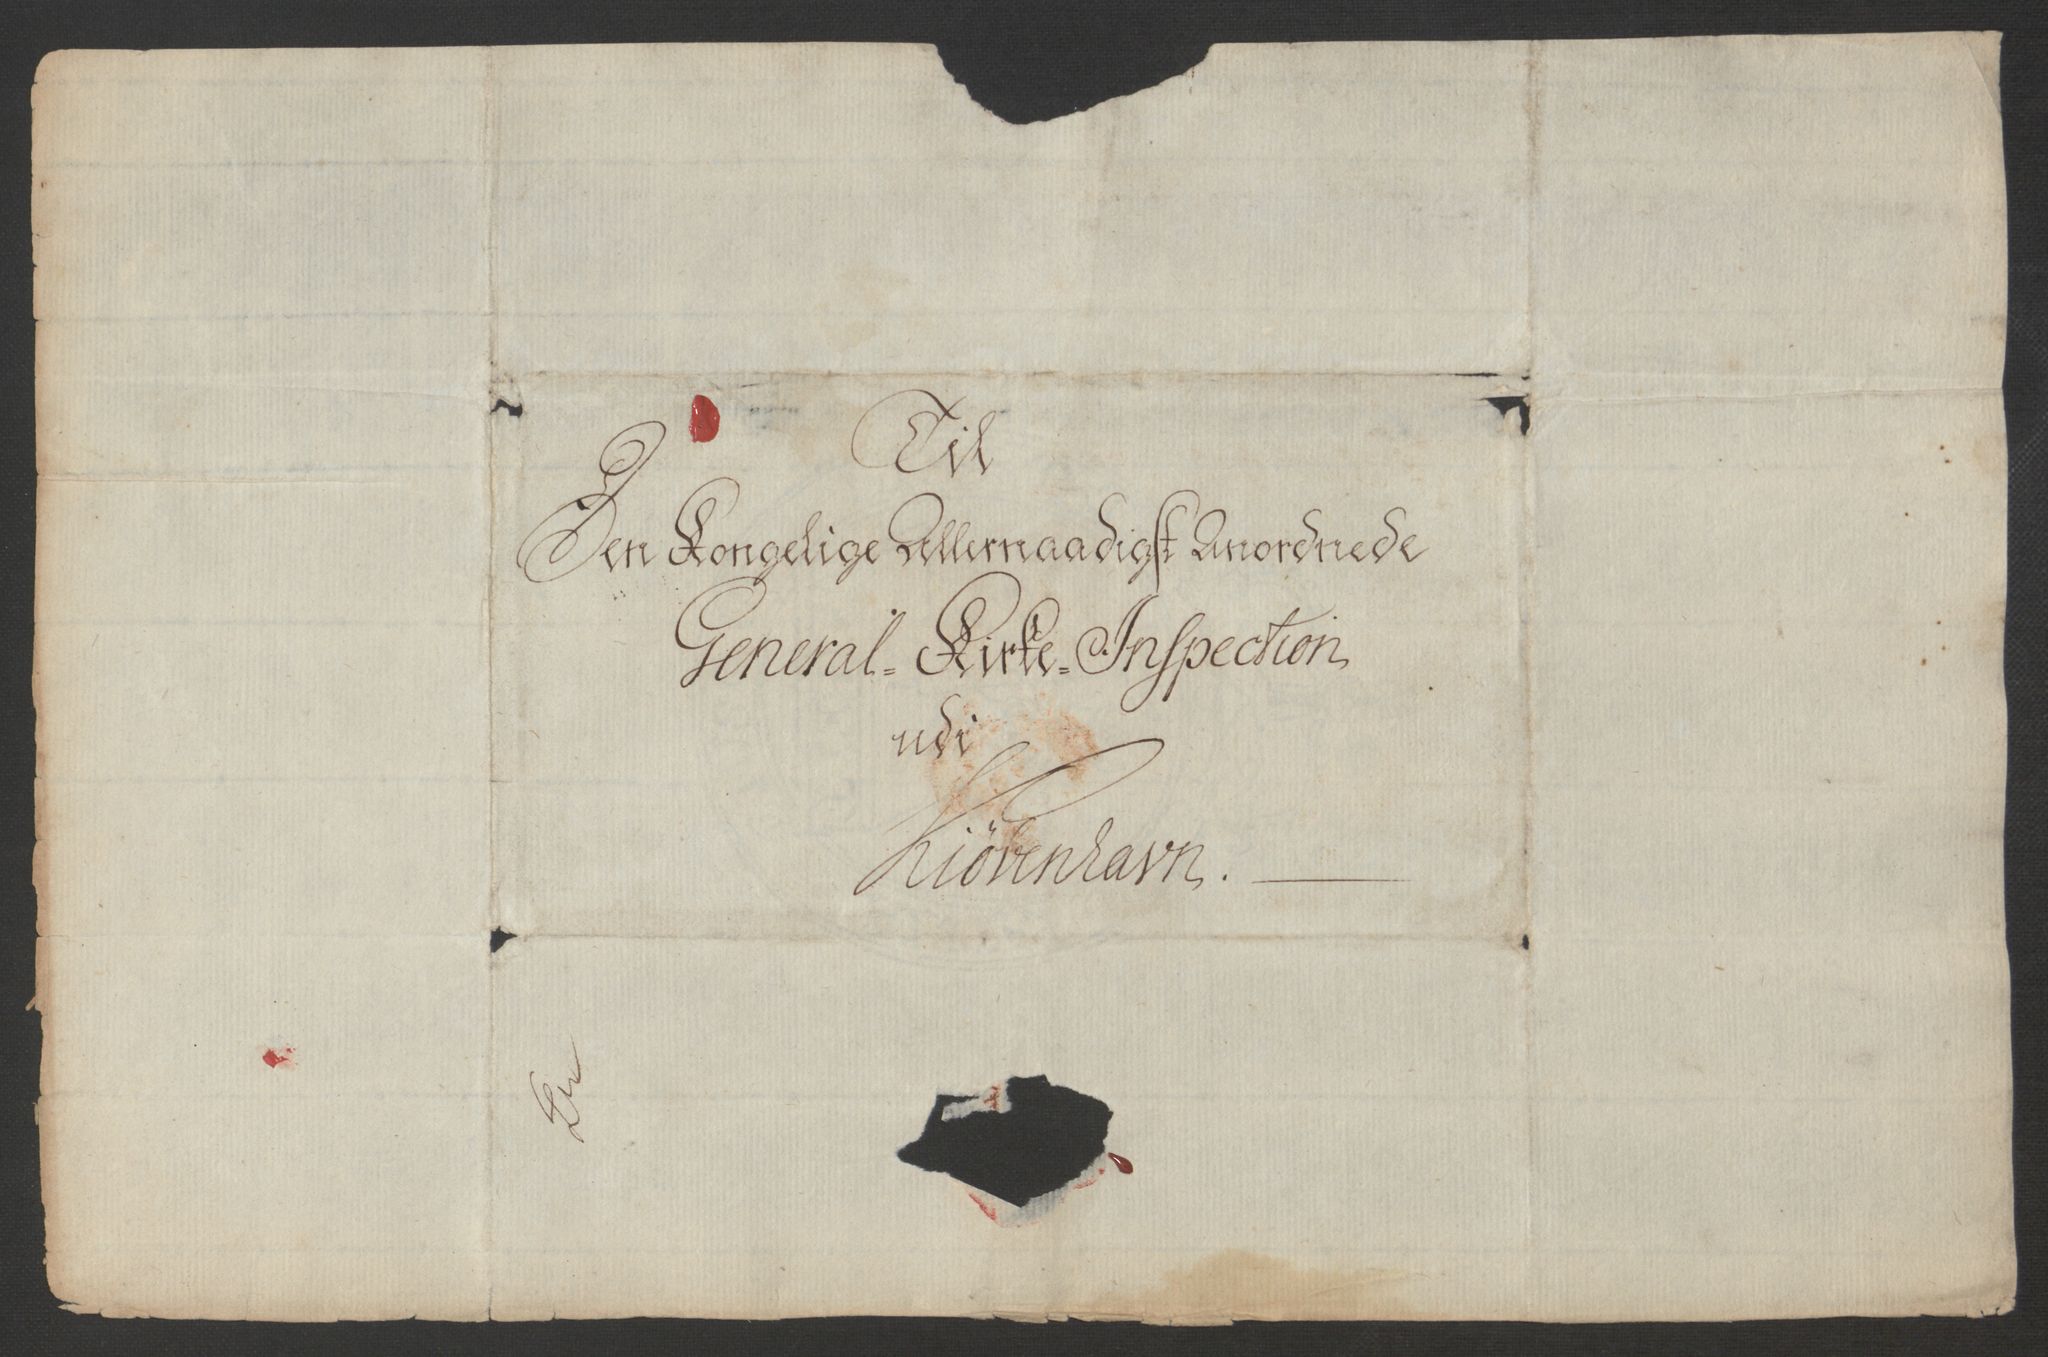 Til
Den Kongelige Allernaadigst Anordnede
General-Kirke-Inspection
udi
Kiøbenhavn.